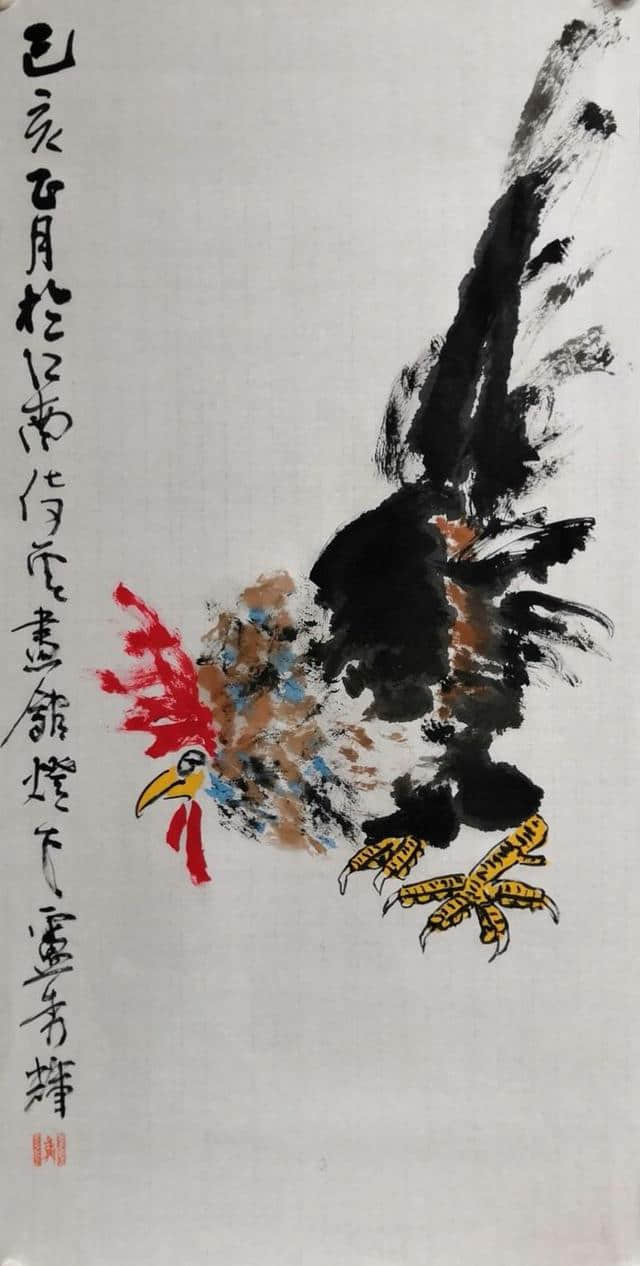 己亥正月於江南侍雲畫館燈下盧秀輝